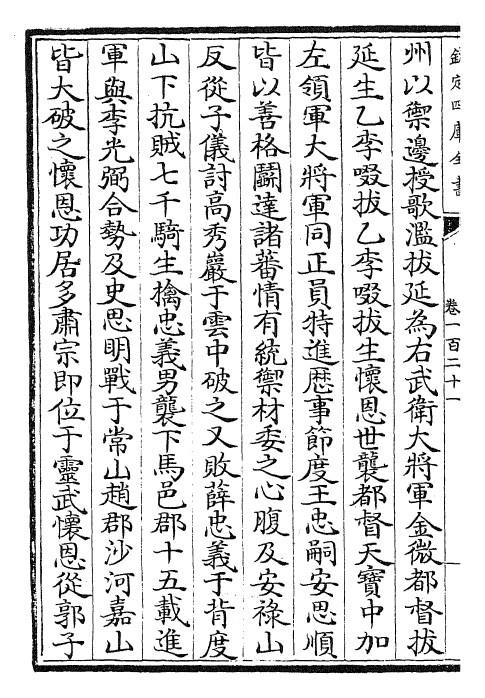 欽定四庫全書
卷一百二十一
州以禦邊授歌濫拔延為右武衛大將軍金微都督拔
延生乙李啜拔乙李啜拔生懷恩世襲都督天寶中加
左領軍大將軍同正員特進歴事節度王忠嗣安思順
皆以善格鬭達諸蕃情有統禦材委之心腹及安禄山
反從子儀討高秀巖于雲中破之又敗薛忠義于背度
山下抗賊七千騎生擒忠義男襲下馬邑郡十五載進
軍與李光弼合勢及史思明戰于常山趙郡沙河嘉山
皆大破之懷恩功居多肅宗即位于靈武懷恩從郭子